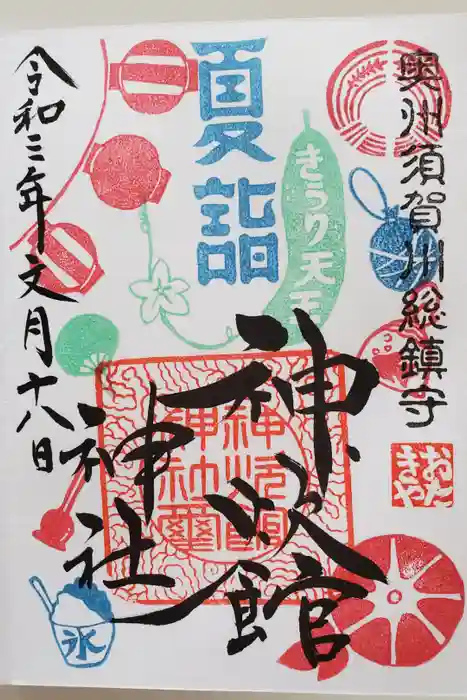 奥州須賀川総鎮守
おんきさや
夏詣
きうり天王
神炊館
神社
神炊館神社璽
令和三年文月十八日
氷